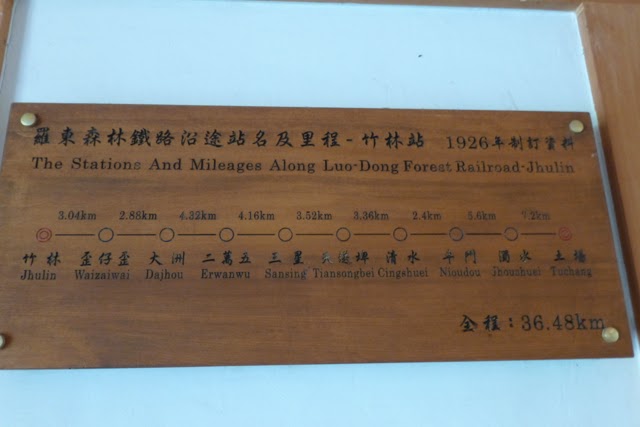 羅東森林鐵路沿途站名及里程-竹林站 1926年制訂資料
The Stations And Mileages Along Luo-Dong Forest Railroad-Jhulin
3.04km 2.88km 4.32km 4.16km 3.52km 3.36km 2.4km 5.6km 7.2km
竹林 歪仔歪 大洲 二萬五 三星 天送埤 清水 牛鬥 濁水 土場
Jhulin Waizaiwai Dajhou Erwanwu Sansing Tiansongbei Cingshuei Nioudou Jhoushuei Tuchang
全程:36.48km